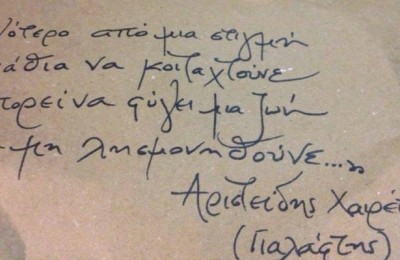 ότερο από μια στιγμή
άθια να κοιταχτούνε
πορεί να φύγει μια ζωή
μη λησμονηθούνε...»
Αριστείδης Χαιρέτ
(Γιαλάφτης)